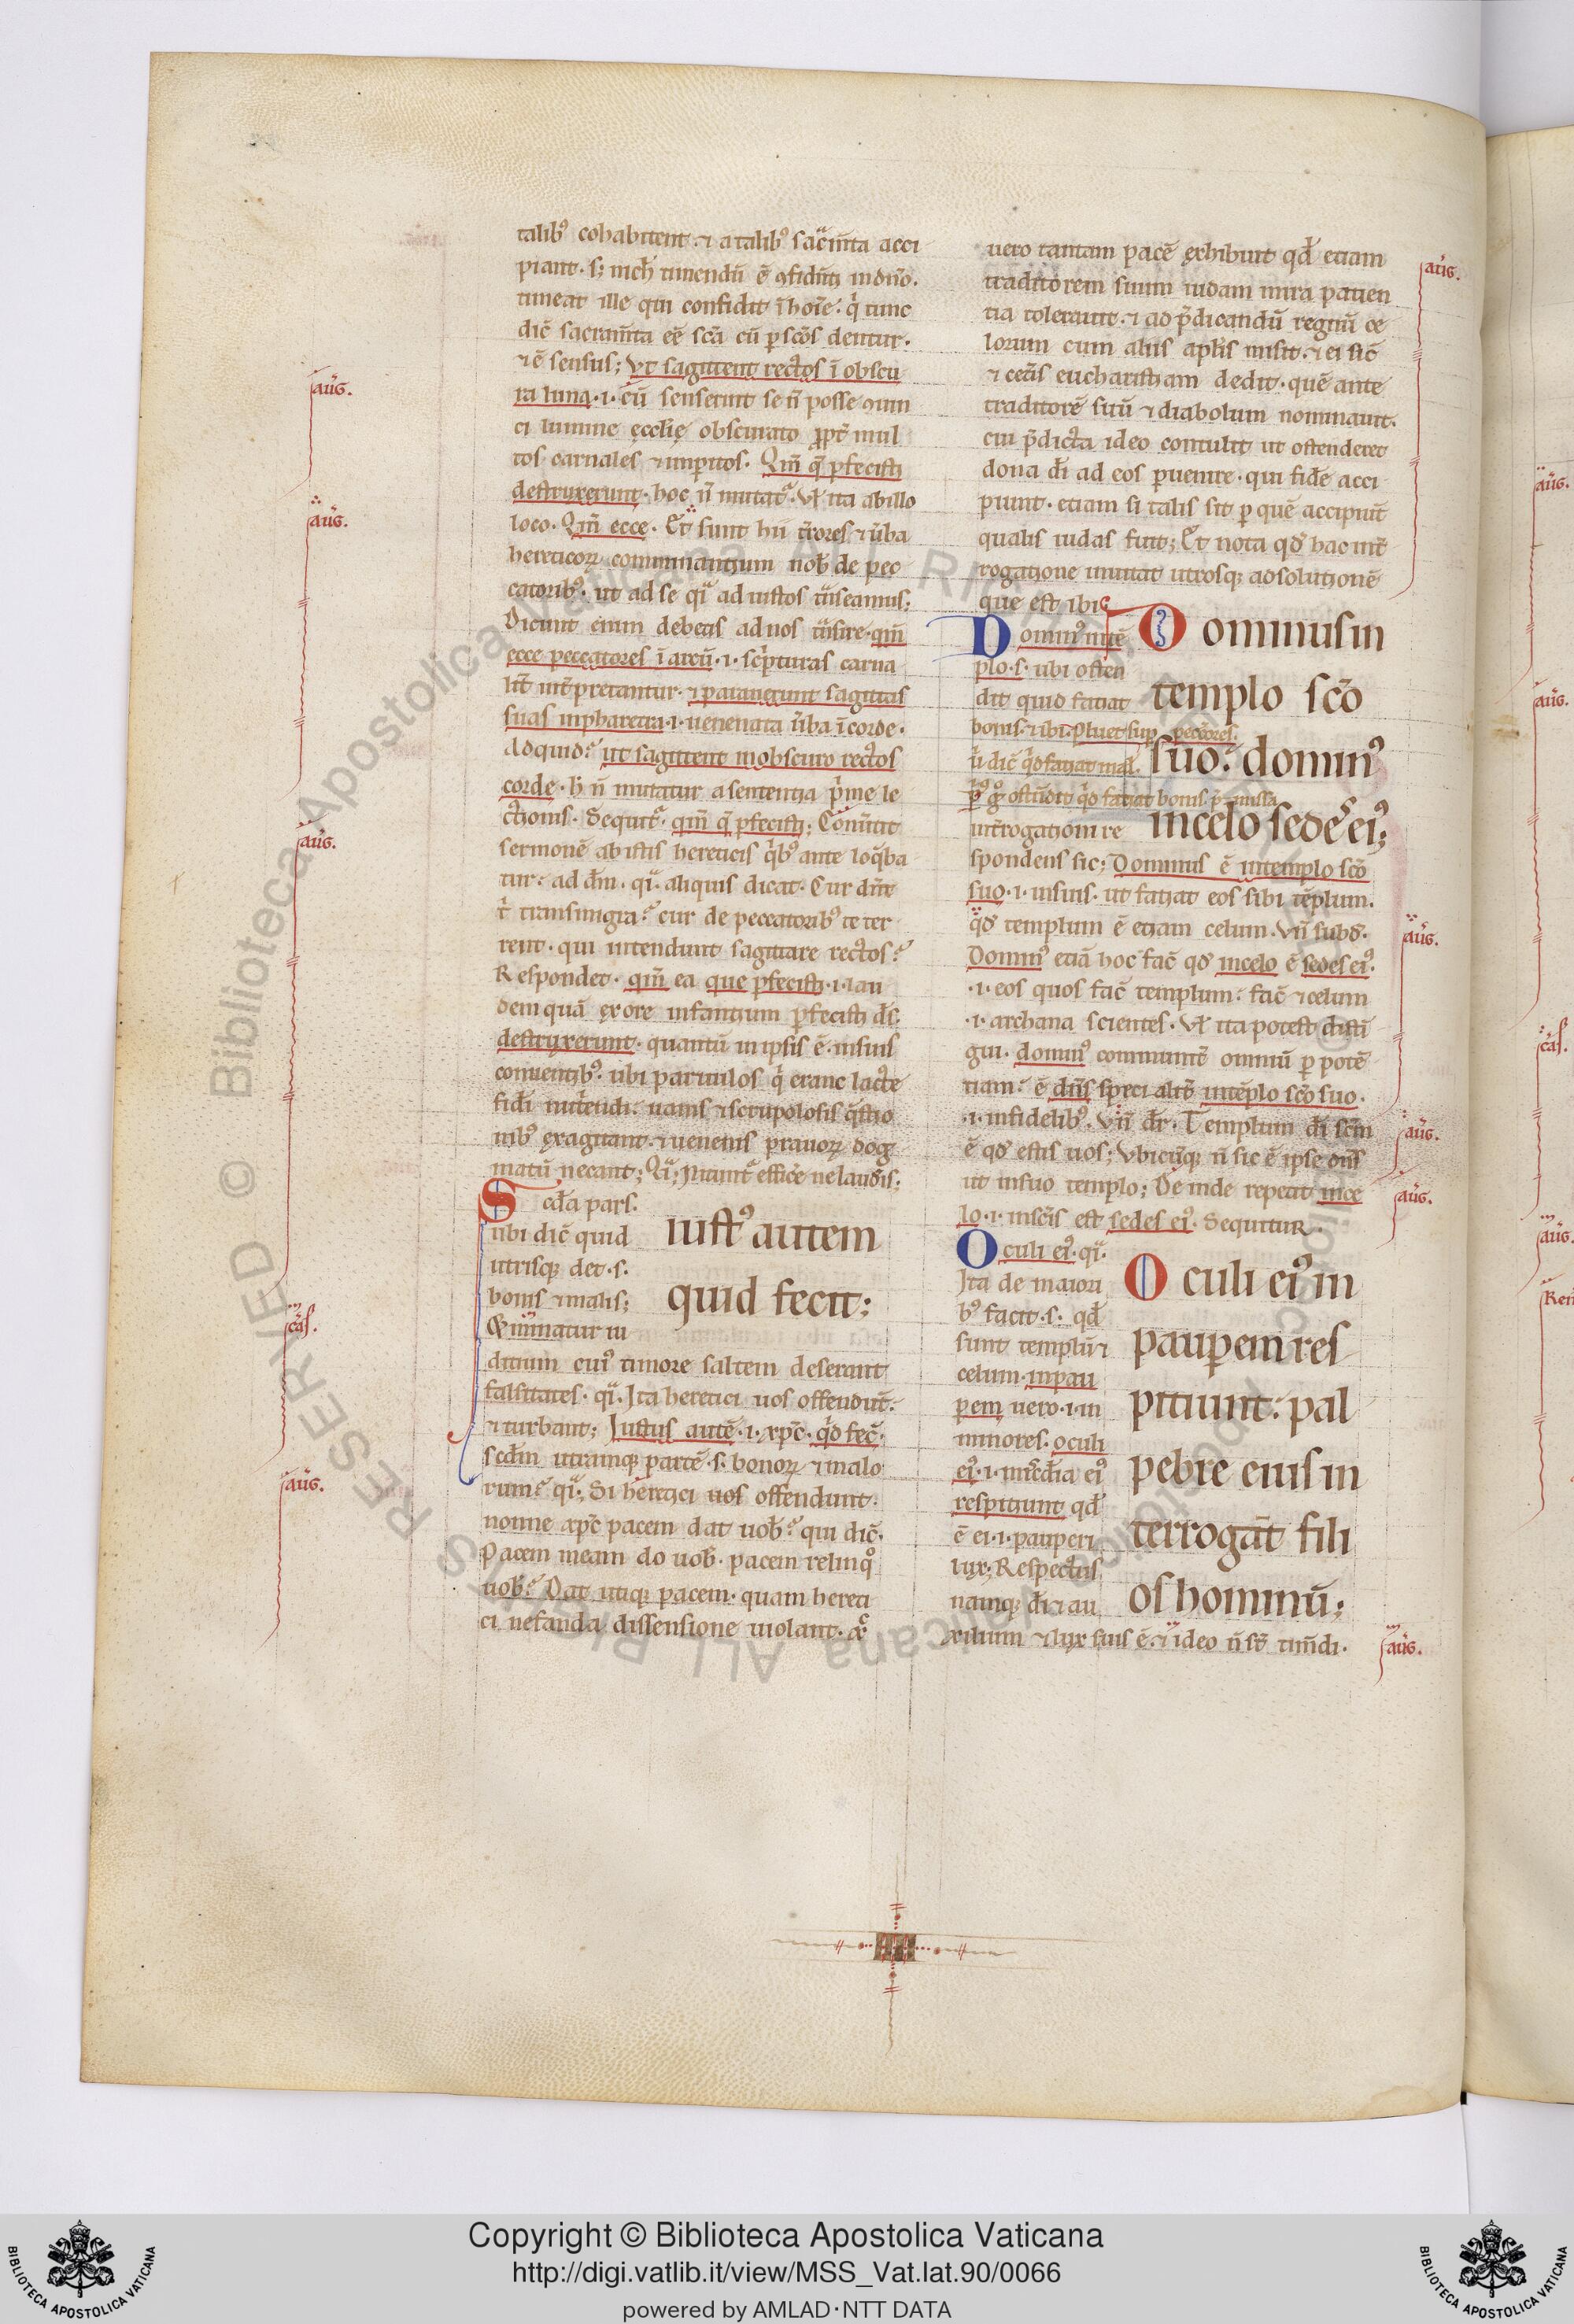 talibꝰ cohabitent. ⁊ a talibꝰ sac̄mta acci
piant. s; mich̄ timendū ē ꝯfidn̄ti in dn̄o.
timeat ille qui confidit ī hoīe. q̄ tunc
dic̄ sacram̄ta eē sc̄a cū p sc̄os dentur.
⁊ ē sensus; Vt sagittent rectos ī obscu
ra luna .i. cū senserint se n̄ posse ꝯuin
ci lumine ecclie obscurato ꝓpt̄ mul
tos carnales ⁊ imperitos. Qm̄ q̄ pfecisti
destruxerunt. hoc n̄ mutat̄. Vl̄ ita ab illo
loco. Qm̄ ecce. Et sunt hii t̄rores ⁊ ūba
hereticoꝝ comminantium nob̄ de pec
catoribꝰ. ut ad se q̄i ad iustos t̄nseamus;
Dicunt enim debetis ad nos t̄nsire. qm̄
ecce peccatores ī arcū .i. sc̄pturas carna
lit̄ int̄pretantur. ⁊ parauerunt sagittas
suas in pharetra .i. uenenata ūba ī corde.
Ad quid? ut sagittent in obscuro rectos
corde. h̄ n̄ mutatur a sententia p̄me le
ctionis. Sequit̄. qm̄ q̄ pfecisti; Conūtit
sermonē ab istis hereticis q̄bꝰ ante loq̄ba
tur. ad dm̄. q̄i. aliquis dicat. Cur dn̄t
t̄ transmigra? cur de peccatoribꝰ te ter
rent. qui intendunt sagittare rectos?
Respondet. qm̄ ea que pfecisti .i. lau
dem quā ex ore infantium pfecisti ds̄.
destruxerunt. quantū in ipsis ē. in suis
conuentibꝰ. ubi paruulos q̄ erant lacte
fidi nut̄endi. uanis ⁊ scrupolosis q̄stio
nibꝰ exagitant. ⁊ uenenis prauoꝝ dog
matū necant; Q̄i; Nitunt̄ effice ne lauderis;
Scd̄a pars.
ubi dic̄ quid
utrisqꝫ det .s.
bonis ⁊ malis;
Iustꝰ autem
quid fecit;
Cōminatur iu
ditium cuiꝰ timore saltem deserant
falsitates. q̄i. Ita heretici uos offendūt.
⁊ turbant; Iustus autē .i. xpc̄. q̄d fec̄.
scd̄m utramqꝫ partē .s. bonoꝝ ⁊ malo
rum? q̄i; Si heretici uos offendunt.
nonne xpc̄ pacem dat uob̄? qui dic̄.
Pacem meam do uob̄. pacem relinqͦ
uob̄? Dat utiqꝫ pacem. quam hereti
ci nefanda dissensione uiolant. xc̄
uero tantam pacē exhibuit qd̄ etiam
traditorem suum iudam mira patien
tia tolerauit. ⁊ ad p̄dicandū regnū ce
lorum cum aliis aplis misit. ⁊ ei sic̄
⁊ cet̄is eucharistiam dedit. quē ante
traditorē suū ⁊ diabolum nominauit.
cui p̄dicta ideo contulit ut ostenderet
dona di ad eos puenire. qui fide acci
piunt. etiam si talis sit p quē accipiūt
qualis iudas fuit; Et nota qd̄ hac int̄
rogatione inuitat utrosqꝫ ad solutionē
que est ibi
Dominꝰ in tē
plo .s. ubi osten
dit quid fatiat
bonis. ⁊ ibi. pluet sup peccores.
ū dic̄ q̄d fatiat mal.
Dominus in
templo sc̄o
suo. dominꝰ
in celo sedes eiꝰ;
int̄rogationi re
spondens sic; Dominus ē in templo sc̄o
suo .i. in suis. ut fatiat eos sibi tēplum.
qd̄ templum ē etiam celum. Vn̄ subd̄.
Dominꝰ etiā hoc fac̄ qd̄ in celo ē sedes eiꝰ.
.i. eos quos fac̄ templum. fac̄ ⁊ celum
.i. archana scientes. Vl̄ ita potest distī
gui. dominꝰ communit̄ omniū p potē
tiam. ē dn̄s specialit̄ in tēplo sc̄o suo.
.i. in fidelibꝰ. Vn̄ dr̄. Templum di sc̄m
ē qd̄ estis uos; Vbicūqꝫ n̄ sic ē ipse dn̄s
ut in suo templo; Deinde repetit in ce
lo .i. in sc̄is est sedes eiꝰ. Sequitur
Oculi eiꝰ. q̄i.
Ita de maiori
bꝰ facit .s. qd̄
sunt templū ⁊
celum. in pau
pem uero .i. in
minores. oculi
eiꝰ .i. mis̄cdia eiꝰ
respitiunt qd̄
ē ei .i. pauperi
lux; Respectus
namqꝫ di ⁊ au
Oculi eiꝰ in
pauperem res
pitiunt: pal
pebre eius in
terrogāt fili
os hominū;
xilium ⁊ lux suis ē. ⁊ ideo n̄ s̄t timēdi.
aug.
aug.
aug.
cas.
aug.
aug.
aug.
aug.
aug.
aug.
aug.
aug.
cas.
aug.
Copyright © Biblioteca Apostolica Vaticana
http://digi.vatlib.it/view/MSS_Vat.lat.90/0066
powered by AMLAD·NTT DATA
BIBLIOTECA APOSTOLICA VATICANA
BIBLIOTECA APOSTOLICA VATICANA